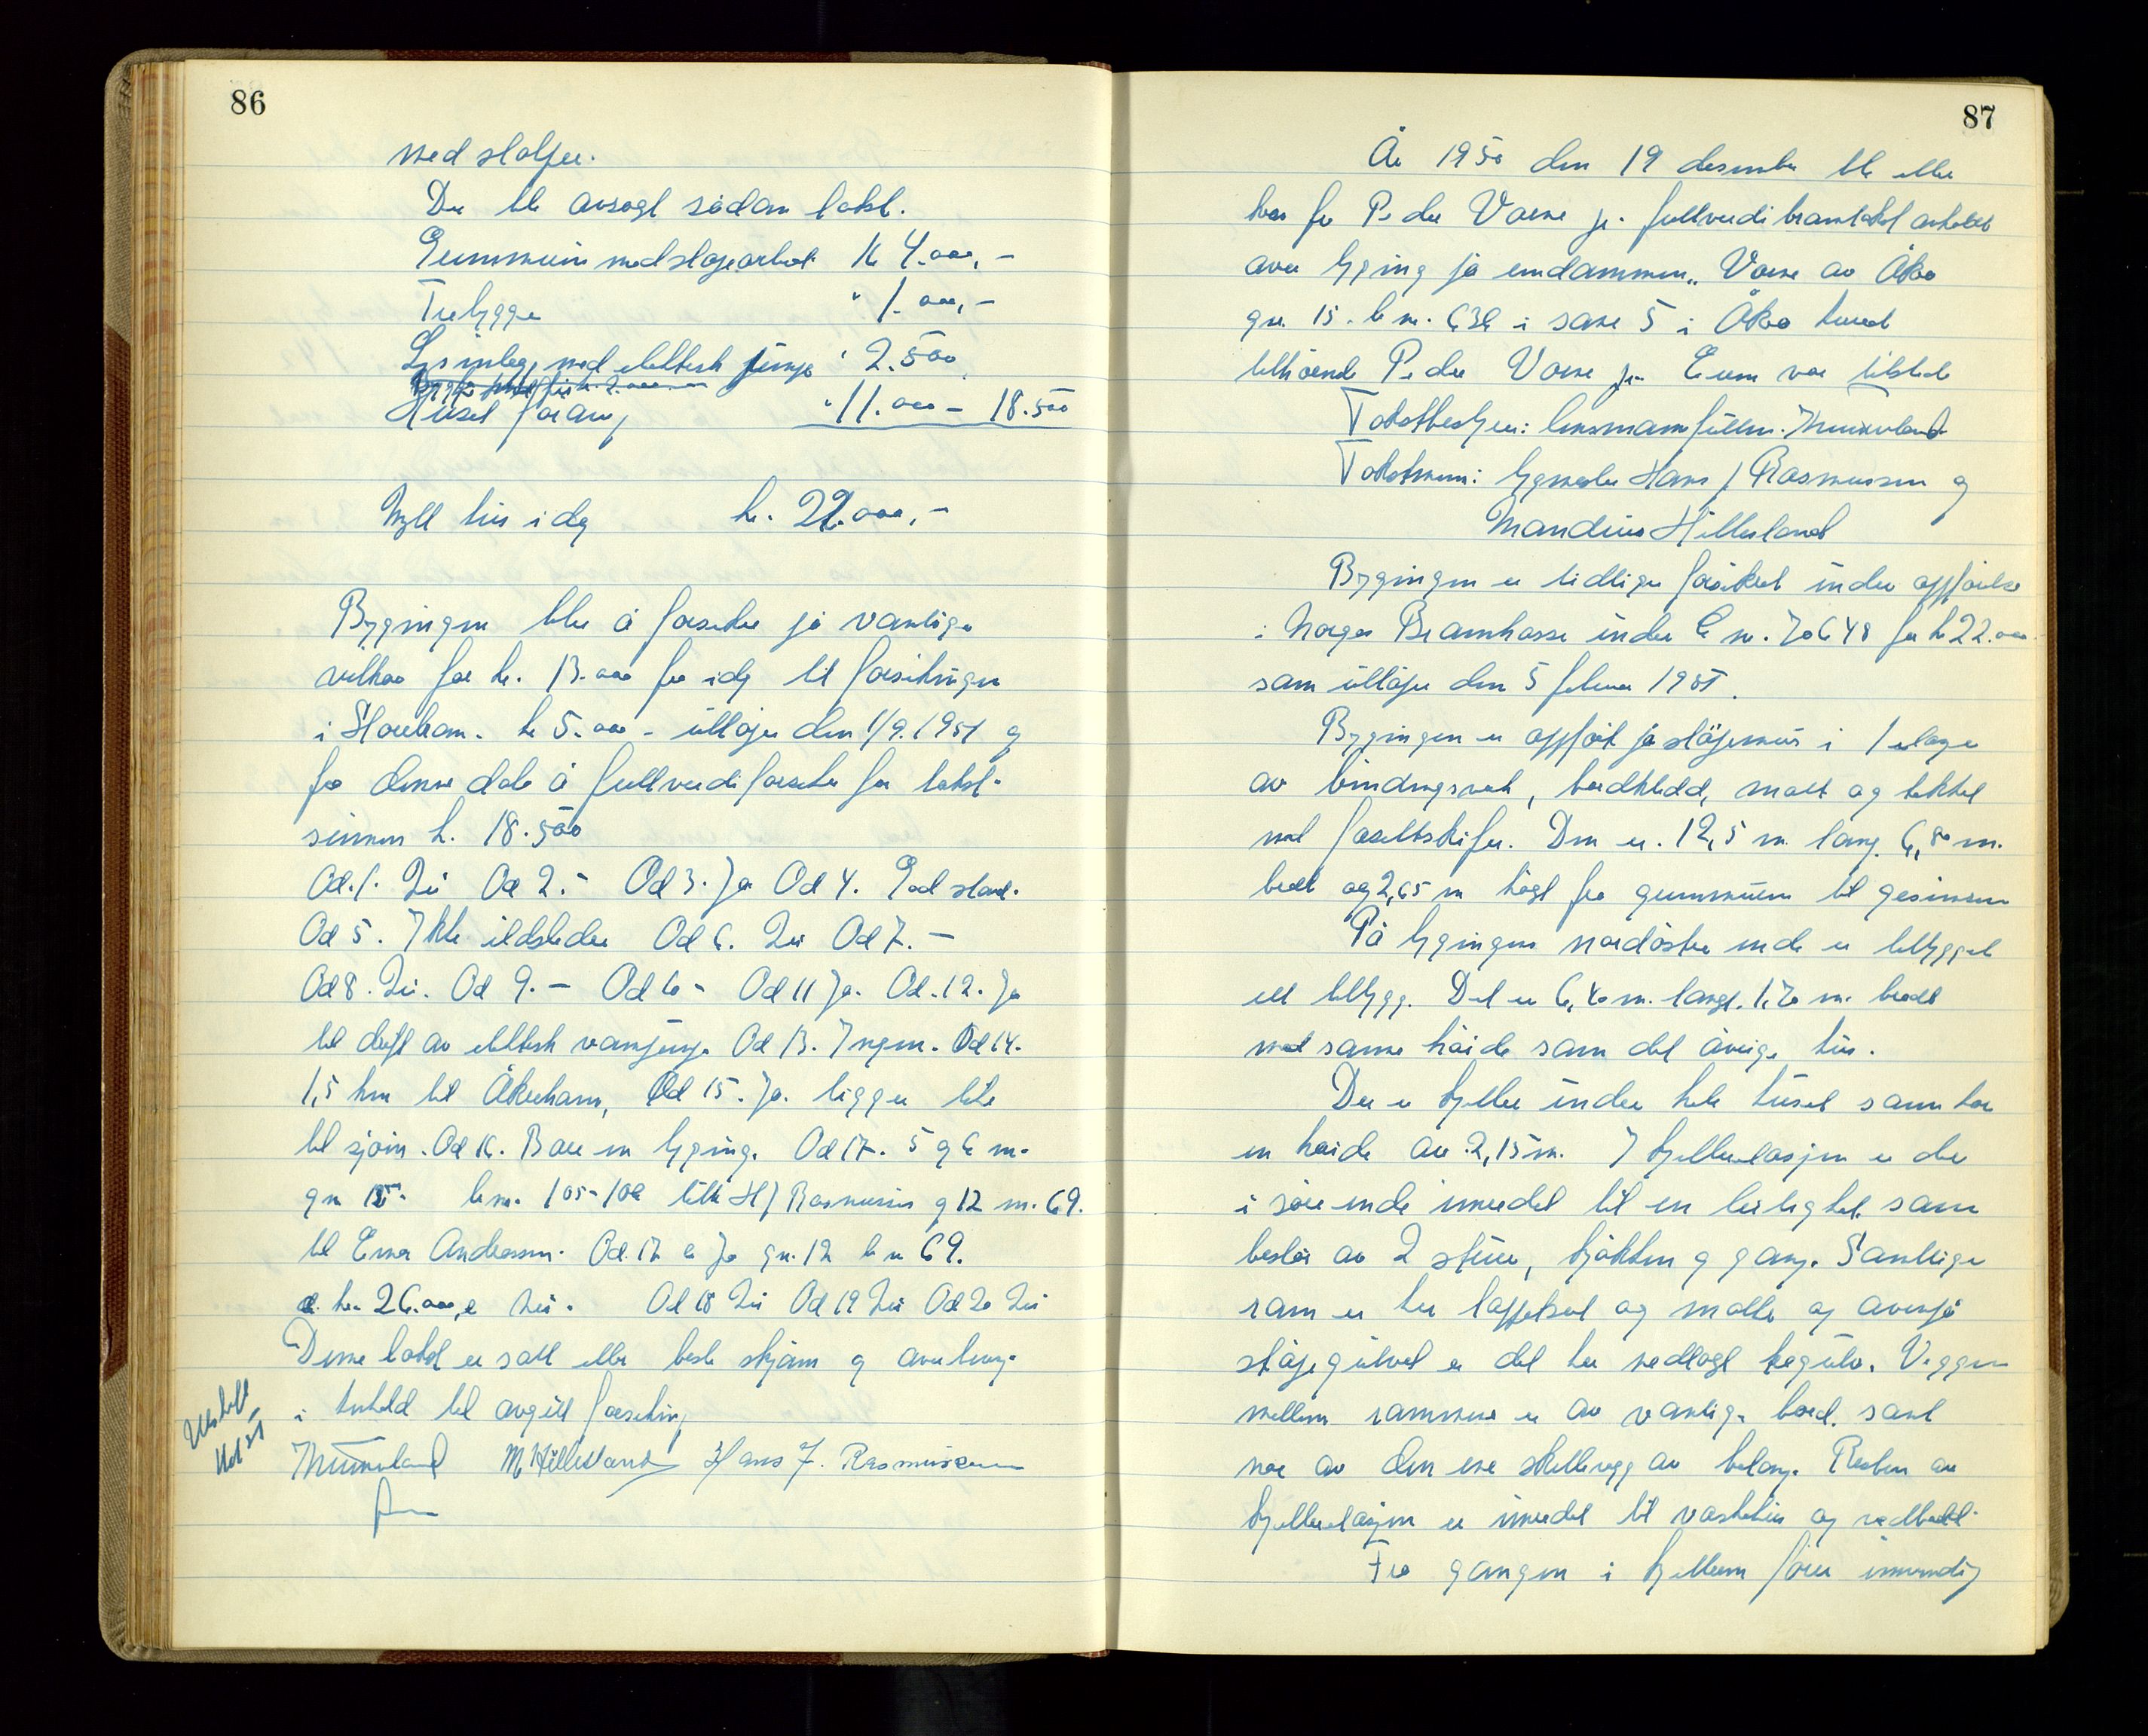 86
med stolper.
Der ble avsagt sådan takst.
Grunnmuren med støpearbeid kr 4.000,-
Trebygge " 1.000,-
Lysinnlegg med elektrisk pumpe " 2.500
Huset forøvrig " 11.000 - 18.500
Nytt hus i dag kr. 22.000,-
Bygningen blir å forsikre på vanlige
vilkår for kr. 13.000 fra idag til forsikringen
i Storebrand. kr 5.000 - utløper den 1/9.1951 og
fra denne dato å fullverdiforsikre for takst-
summen kr. 18.500
Od.1. Nei Od 2. - Od 3. Ja Od 4. God stand.
Od 5. Ikke ildsteder Od 6. Nei Od 7. -
Od 8. Nei. Od 9. - Od 10 - Od 11 Ja. Od. 12. Ja
til drift av elektrisk vannpumpe Od 13. Ingen. Od 14.
1,5 km til Åkrehamn, Od 15. Ja. ligger like
til sjøen. Od 16. Bare en bygning. Od 17. 5 og 6 m.
gn 15. bnr. 105-106 tilh H J Rasmussen og 12 m. 69.
til Einar Andreassen. Od. 17 b Ja gn. 12 bn 69.
d. kr. 26.000, e Nei. Od 18 Nei Od 19 Nei Od 20 Nei
Denne takst er satt etter beste skjønn og overbevis-
i henhold til avgitt forsikring
M Hillesland Hans J. Rasmussen
87
År 1950 den 19 desember ble etter
krav fra Peder Vorre jr. fullverdi branntakst avholdt
over bygning på eiendommen „Vorre av Åkra
gnr. 15. bnr. 636 i sone 5 i Åkra herred
tilhørende Peder Vorre jr. Eieren var tilstede
Takstbestyrer: lensmannsfullm.
Takstmenn: byggmester Hans J Rasmussen og
Mandius Hillesland
Bygningen er tidligere forsikret under oppførelse
i Norges Brannkasse under L nr. 70648 for kr 22.000
som utløper den 5 februar 1951.
Bygningen er oppført på støpemur i 1 etasje
av bindingsverk, bordkledd, malt og tekket
med forseltskifer. Den er. 12,5 m. lang. 6,80 m.
bred og 2,65 m høgt fra grunnmuren til gesimsen
På bygningens nordøstre ende er tilbygget
ett tilbygg. Det er 6,40 m. langt. 1,70 m. bredt
med samme høide som det øvrige hus.
Der er kjeller under hele huset som har
en høide av 2,15 m. I kjelleretasjen er der
i søre ende innredet til en leilighet som
består av 2 stuer, kjøkken og gang. Samtlige
rom er her tapetsert og malte og ovenpå
støpegulvet er det her nedlagt tregulv. Veggene
mellem rommene er av vanlige bord. samt
noe av den ene skillevegg av betong. Resten av
kjelleretasjen er innredet til vaskehus og vedbod.
Fra gangen i kjelleren fører innvendig